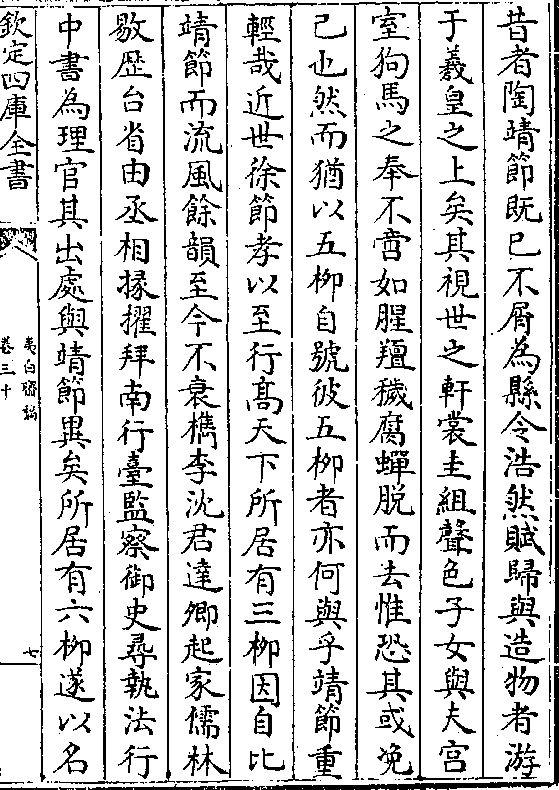 昔者陶靖節既已不屑為縣令浩然賦歸與造物者游
于羲皇之上矣其視世之軒裳圭組聲色子女與夫宫
室狗馬之奉不啻如腥羶穢腐蟬脱而去惟恐其或浼
己也然而猶以五栁自號彼五栁者亦何與乎靖節重
輕哉近世徐節孝以至行髙天下所居有三栁因自比
靖節而流風餘韻至今不衰檇李沈君達卿起家儒林
敭歴台省由丞相掾擢拜南行臺監察御史尋執法行
中書為理官其出處與靖節異矣所居有六栁遂以名
欽定四庫全書
夷白齋稿
卷三十
七